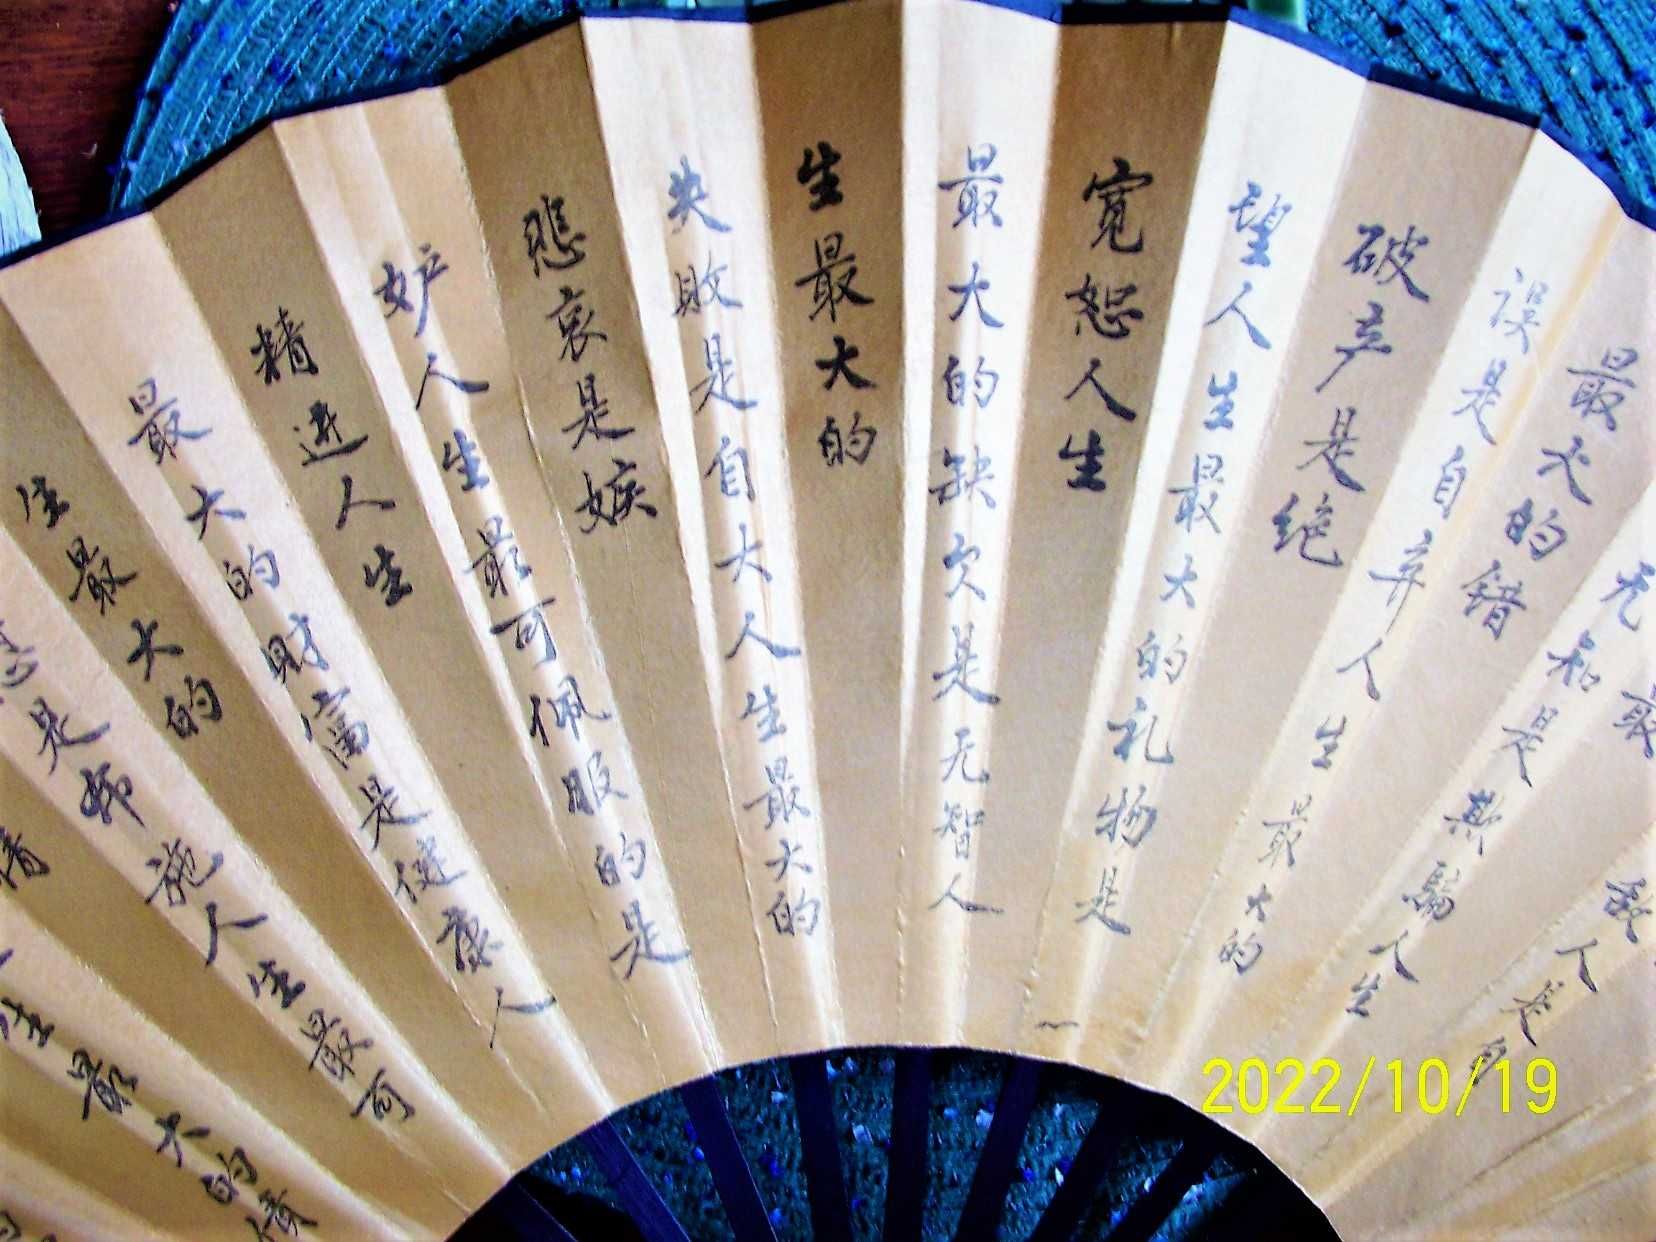 敌人是自
无知是欺骗人生
最大的错
误是自弃人生最大的
破产是绝
望人生最大的礼物是
宽恕人生
最大的缺欠是无智人
生最大的
失败是自大人生最大的
悲哀是嫉
妒人生最可佩服的是
精进人生
最大的财富是健康人
生最大的
是布施人生最可
情
生最大的债
2022/10/19